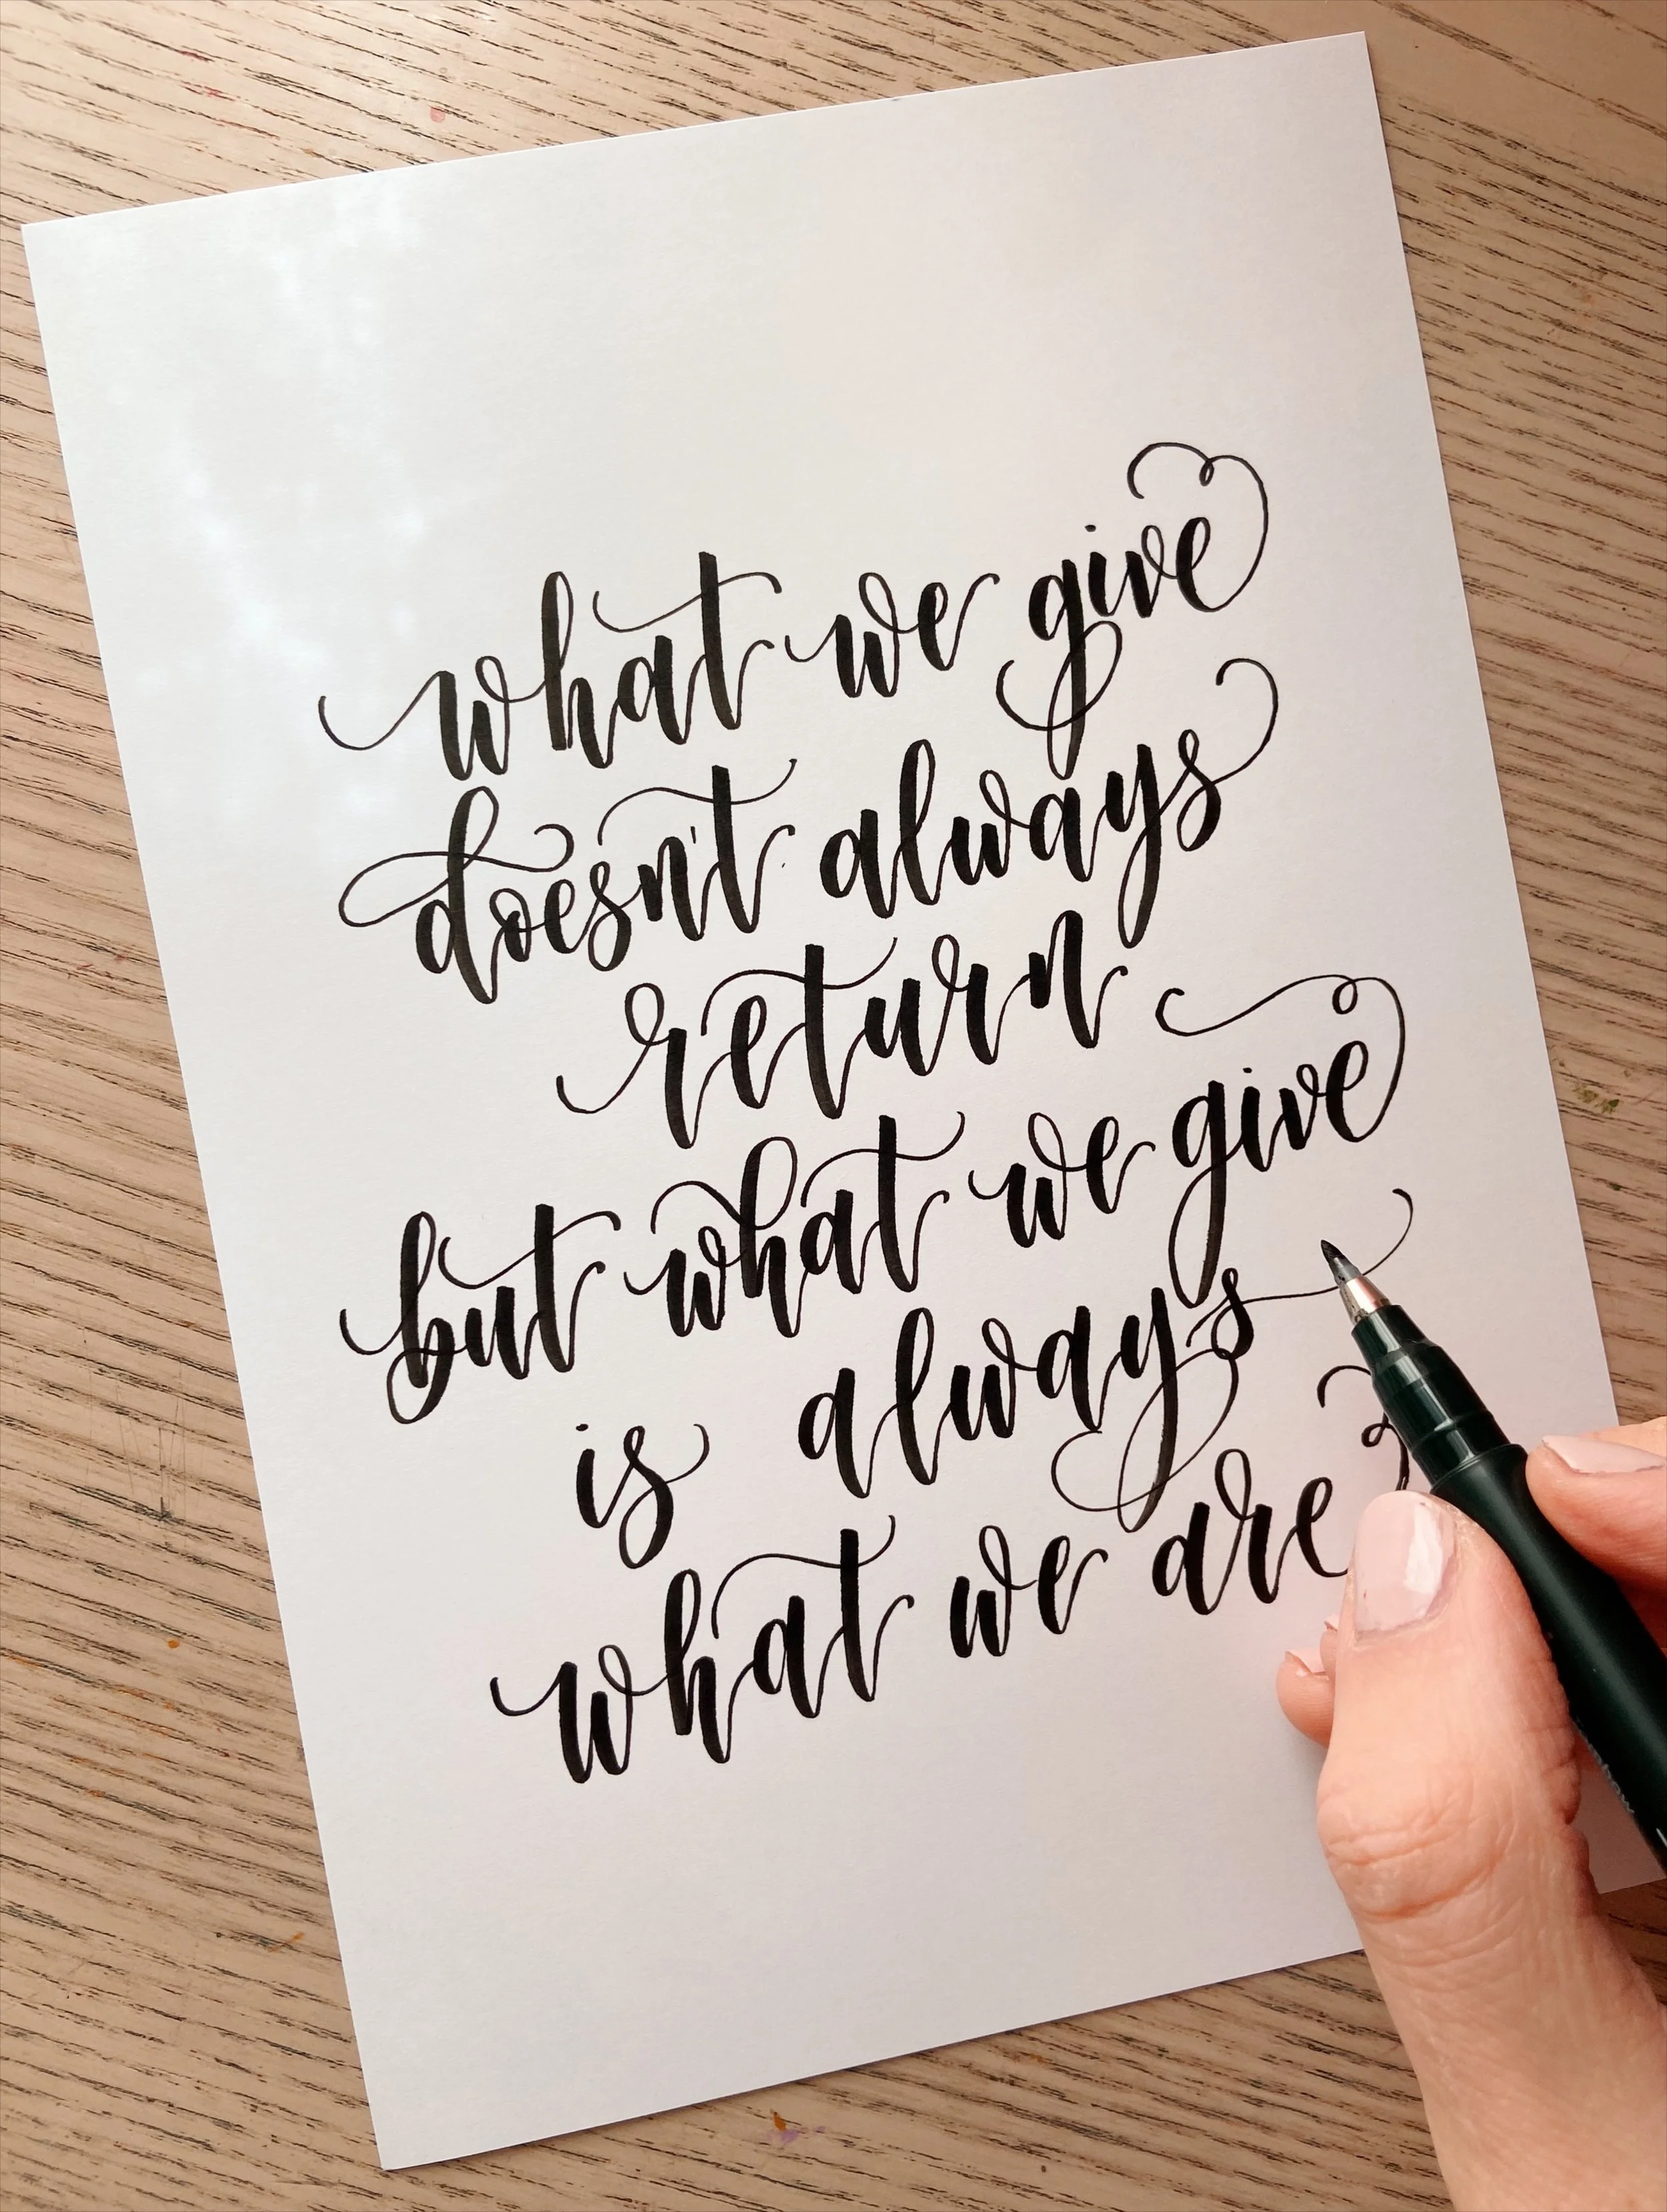 what we give
doesn't always
return
but what we give
is always
what we are